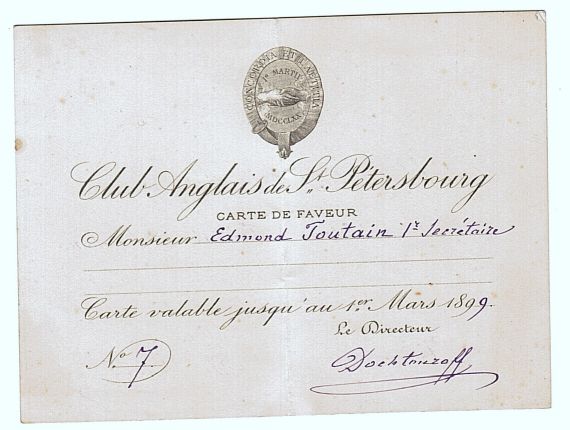 CONCORDIA ET LAETITIA
1º MARTII
MDCCLXX
Club Anglais de St. Pétersbourg
CARTE DE FAVEUR
Monsieur Edmond Toutain 1r Secrétaire
Carte valable jusqu'au 1er Mars 1899.
Le Directeur
No 7. Dochtouroff